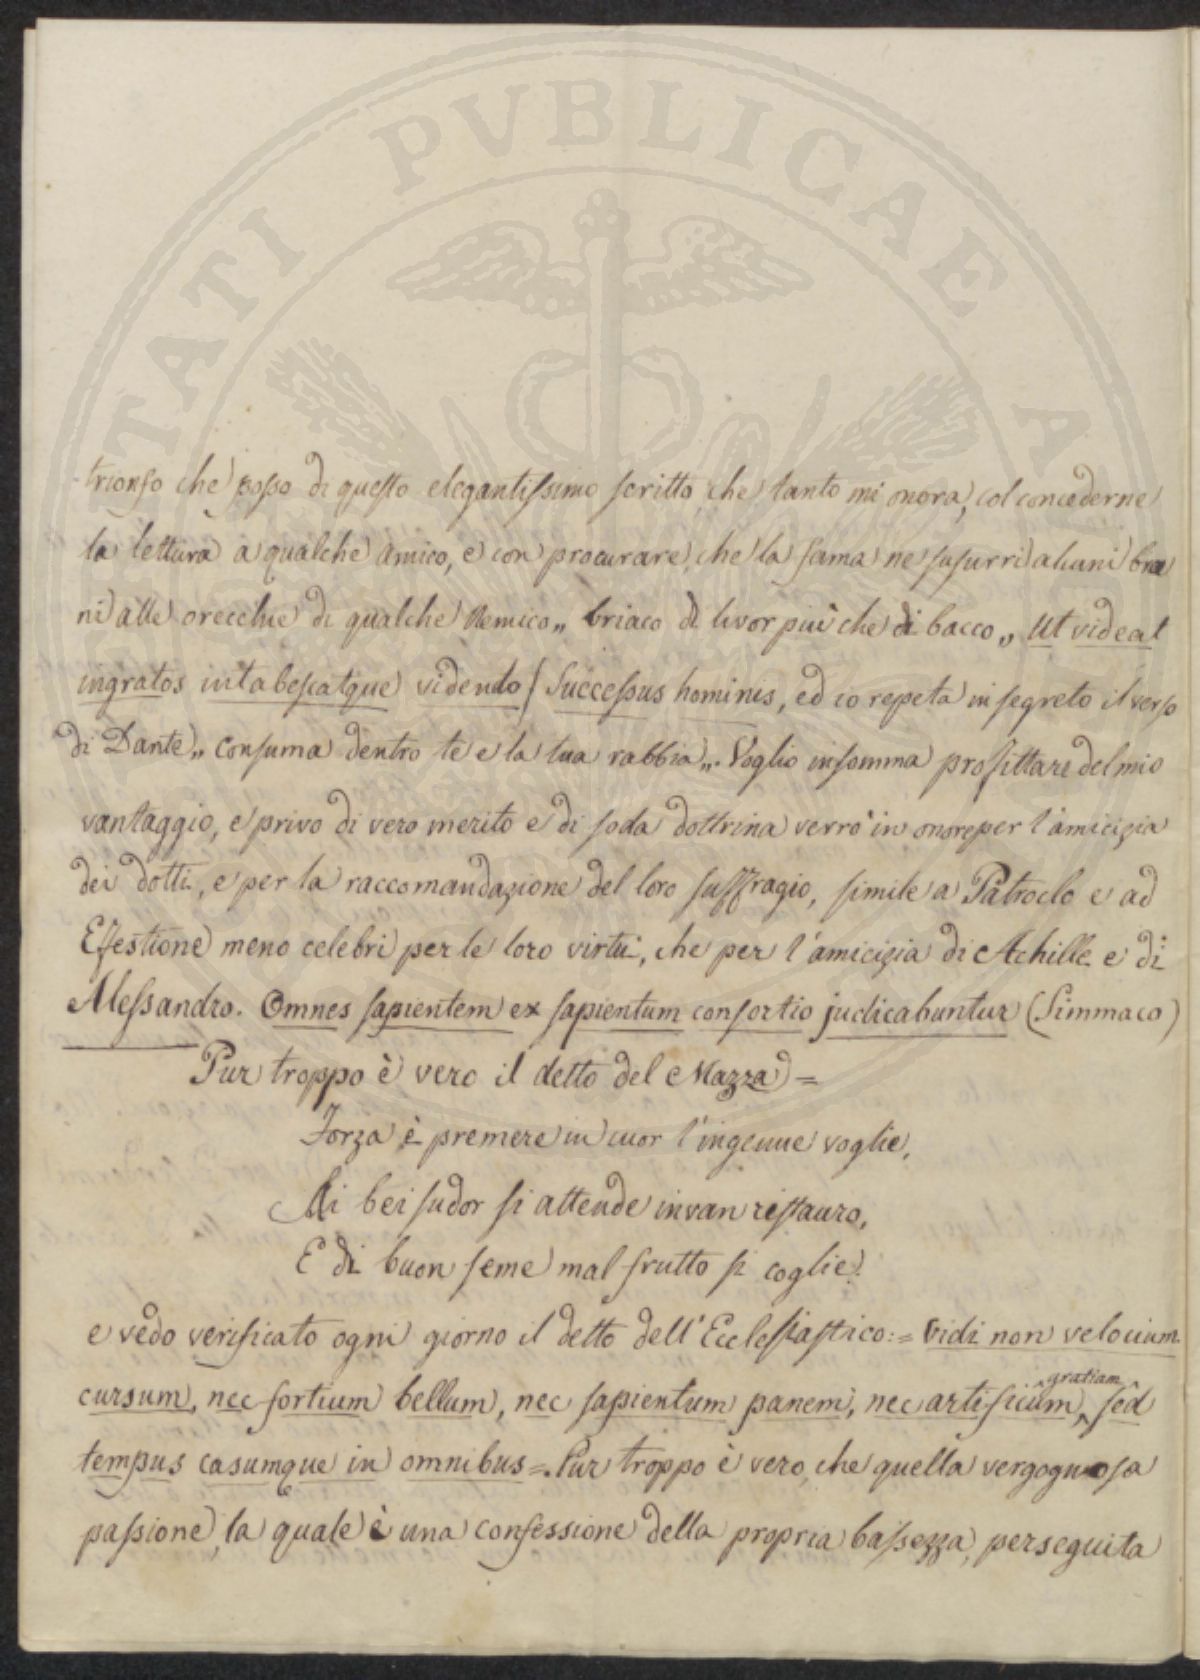 TATI PVBLICAE A
trionfo che posso di questo elegantissimo scritto, che tanto mi onora, col concederne
la lettura a qualche amico, e con procurare, che la fama ne susurri alcuni bra
ni alle orecchie di qualche Nemico „ briaco di livor più che di bacco „ Ut videat
ingratos intabescatque videndo / Successus hominis, ed io repeta in segreto il verso
di Dante „ Consuma dentro te e la tua rabbia „. Voglio insomma profittare del mio
vantaggio, e privo di vero merito e di soda dottrina verrò in onore per l'amicizia
dei dotti, e per la raccomandazione del loro suffragio, simile a Patroclo e ad
Efestione meno celebri per le loro virtù, che per l'amicizia di Achille e di
Alessandro. Omnes sapientem ex sapientum consortio judicabuntur (Simmaco)
Pur troppo è vero il detto del Mazza =
Forza è premere in cuor l'ingenue voglie,
Ai bei sudor si attende invan restauro,
E di buon seme mal frutto si coglie.
e vedo verificato ogni giorno il detto dell'Ecclesiastico: = Vidi non velocium
cursum, nec fortium bellum, nec sapientum panem, nec artificum gratiam, sed
tempus casumque in omnibus =. Pur troppo è vero, che quella vergognosa
passione, la quale è una confessione della propria bassezza, perseguita